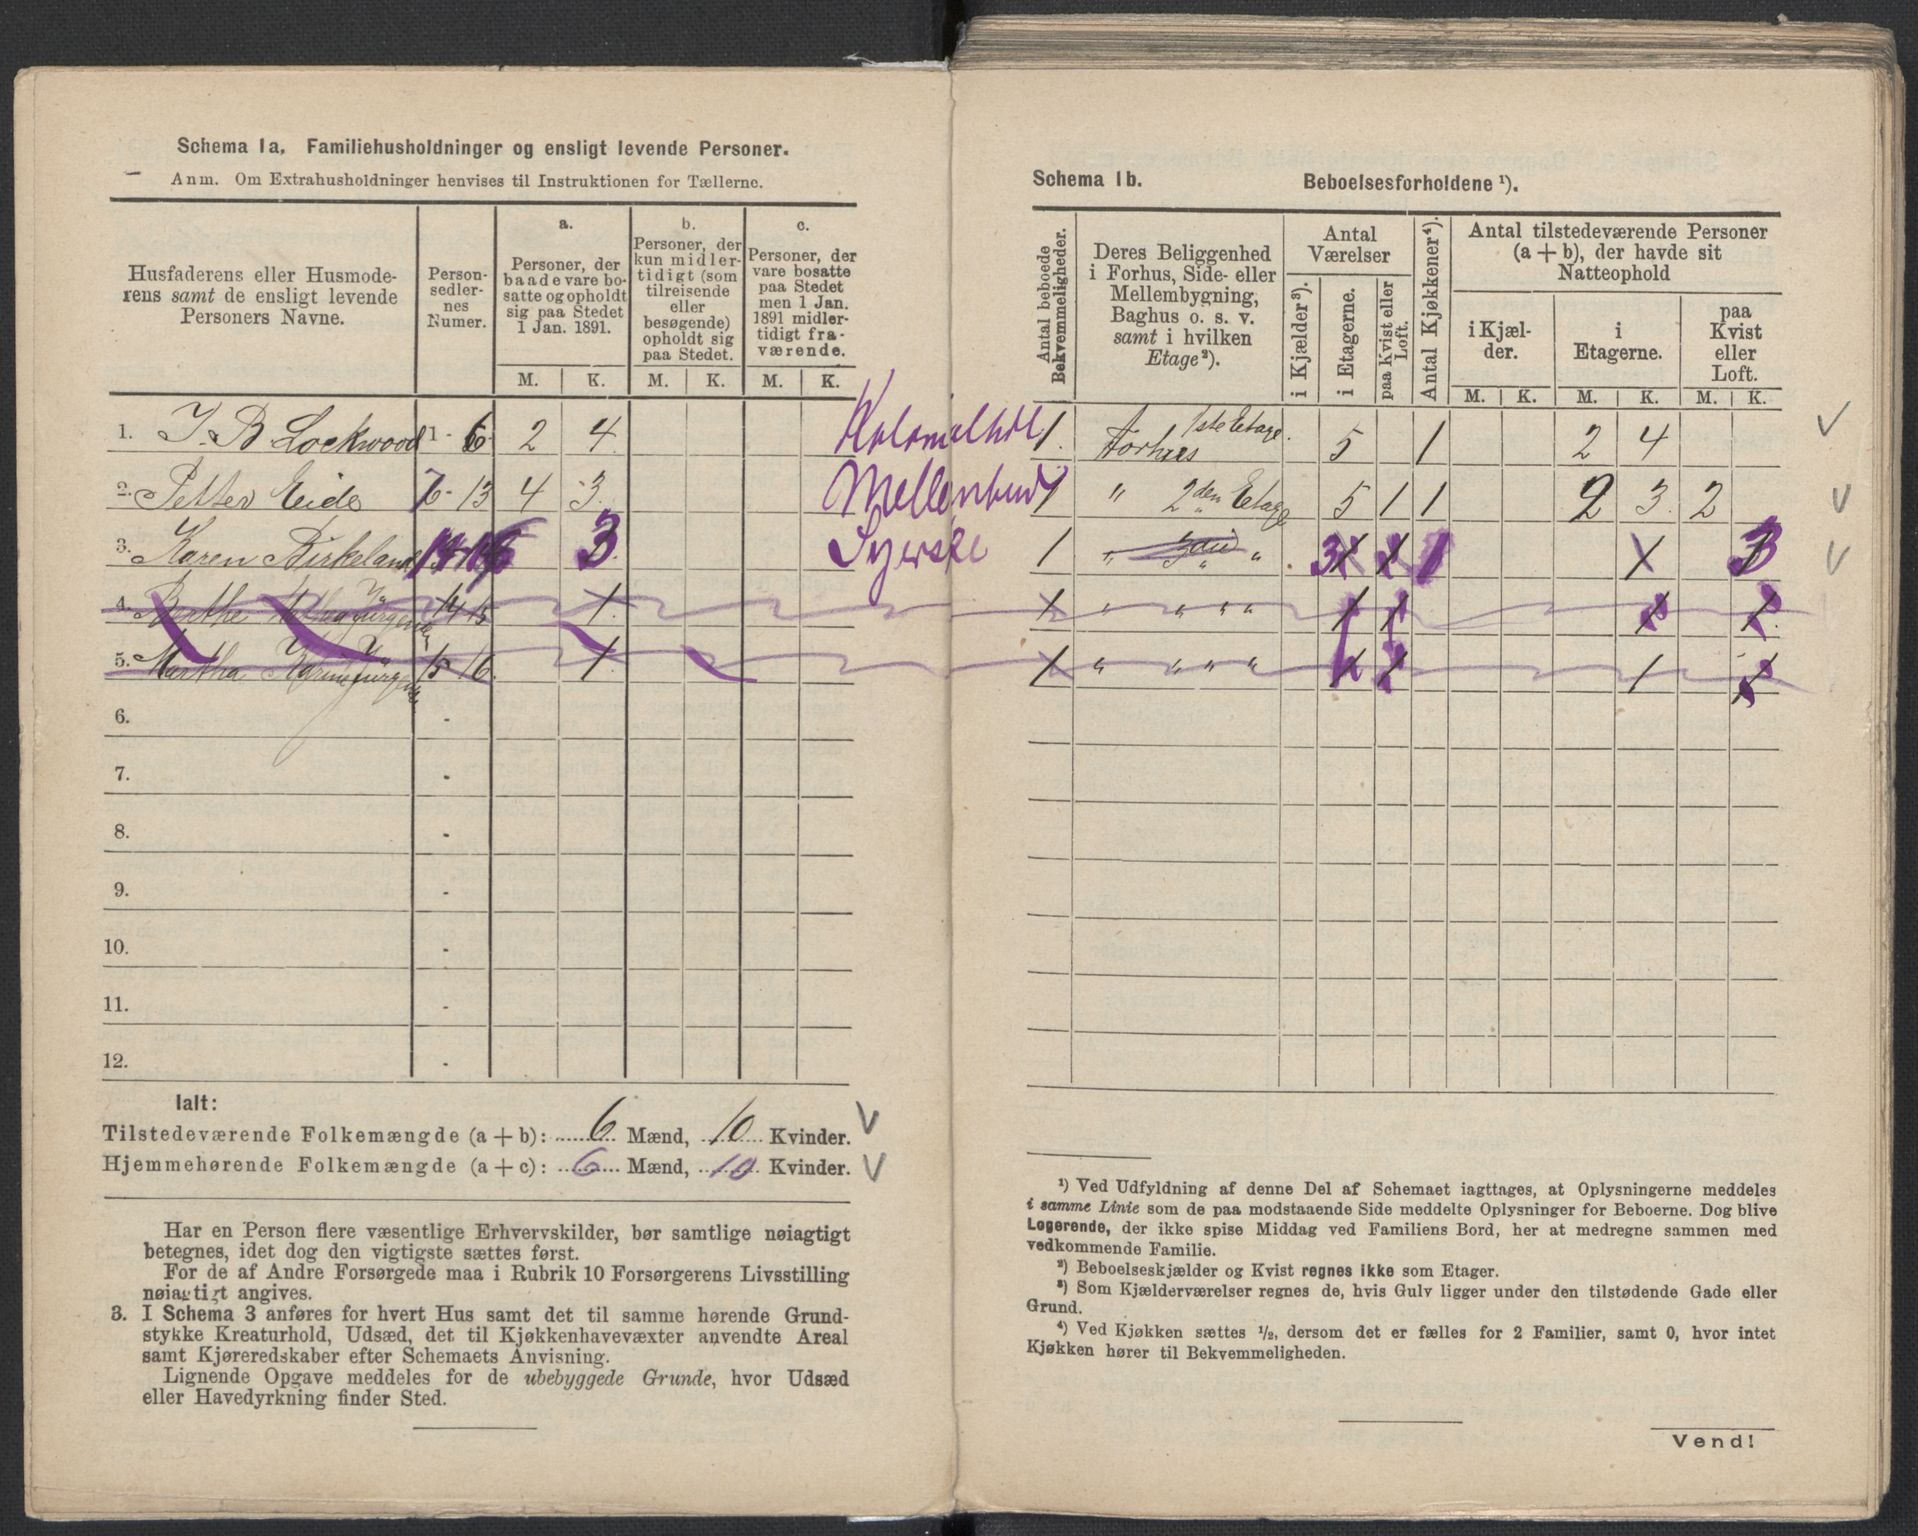 Schema 1a. Familiehusholdninger og ensligt levende Personer.
Anm. Om Extrahusholdninger henvises til Instruktionen for Tællerne.
Husfaderens eller Husmode-
rens samt de ensligt levende
Personers Navne.
Person-
sedler-
nes
Numer.
a.
Personer, der
baade vare bo-
satte og opholdt
sig paa Stedet
1 Jan. 1891.
b.
Personer, der
kun midler-
tidigt (som
tilreisende
eller
besøgende)
opholdt sig
paa Stedet.
c.
Personer, der
vare bosatte
paa Stedet
men 1 Jan.
1891 midler-
tidigt fra-
værende.
M. K. M. K. M. K.
1. J. B. Lockwood 1 - 6 2 4
2. Petter Eide 7 - 13 4 3
3. Karen Birkeland 14 16 3
4. Berthe Jørgensen 14 15 1
5. Martha Karine Jørgensen 15 16 1
6. -
7. -
8. -
9. -
10. -
11. -
12. -
Ialt:
Tilstedeværende Folkemængde (a + b): 6 Mænd, 10 Kvinder. V
Hjemmehørende Folkemængde (a + c): 6 Mænd, 10 Kvinder. V
Har en Person flere væsentlige Erhvervskilder, bør samtlige nøiagtigt
betegnes, idet dog den vigtigste sættes først.
For de af Andre Forsørgede maa i Rubrik 10 Forsørgerens Livsstilling
nøiagtigt angives.
3. I Schema 3 anføres for hvert Hus samt det til samme hørende Grund-
stykke Kreaturhold, Udsæd, det til Kjøkkenhavevæxter anvendte Areal
samt Kjøreredskaber efter Schemaets Anvisning.
Lignende Opgave meddeles for de ubebyggede Grunde, hvor Udsæd
eller Havedyrkning finder Sted.
Schema 1b. Beboelsesforholdene ¹).
Antal beboede
Bekvemmeligheder.
Deres Beliggenhed
i Forhus, Side- eller
Mellembygning,
Baghus o. s. v.
samt i hvilken
Etage²).
Antal
Værelser
i Kjælder³).
i Etagerne.
paa Kvist eller
Loft.
Antal Kjøkkener⁴).
Antal tilstedeværende Personer
(a + b), der havde sit
Natteophold
i Kjæl-
der.
i
Etagerne.
paa
Kvist
eller
Loft.
M. K. M. K. M. K.
1. Forhus 1ste Etage. 5 1 2 4 V
1 " 2den Etage 5 1 1 2 3 2 V
Syerske 1 " " 3 1 3 V
1 " " " " 1 1 1 1
1 " " " " 1 1 1 1
¹) Ved Udfyldning af denne Del af Schemaet iagttages, at Oplysningerne meddeles
i samme Linie som de paa modstaaende Side meddelte Oplysninger for Beboerne. Dog blive
Logerende, der ikke spise Middag ved Familiens Bord, her at medregne sammen med
vedkommende Familie.
²) Beboelseskjælder og Kvist regnes ikke som Etager.
³) Som Kjælderværelser regnes de, hvis Gulv ligger under den tilstødende Gade eller
Grund.
⁴) Ved Kjøkken sættes ½, dersom det er fælles for 2 Familier, samt 0, hvor intet
Kjøkken hører til Bekvemmeligheden.
Vend!